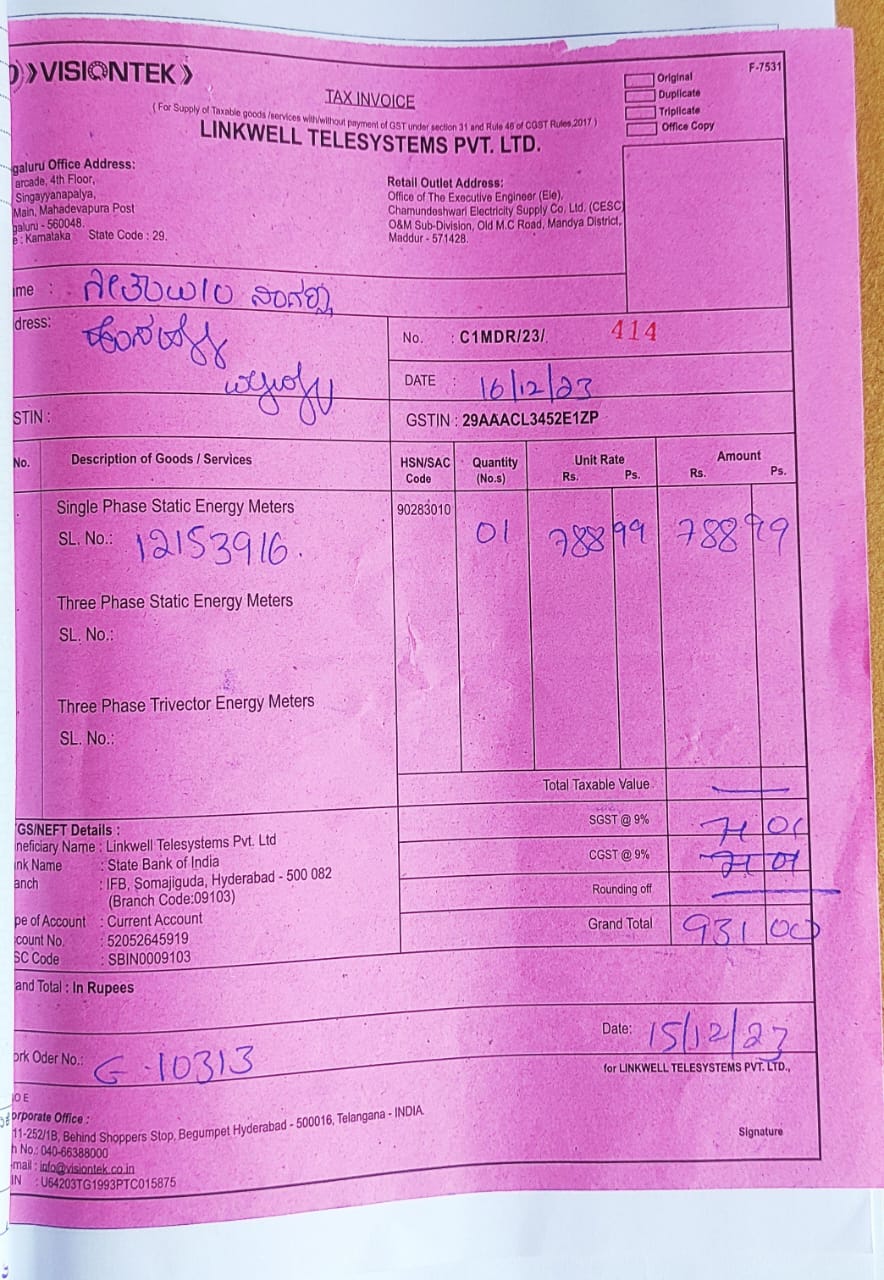 VISIONTEK
F-7531
TAX INVOICE
( For Supply of Taxable goods /services with/without payment of GST under section 31 and Rule 46 of CGST Rules,2017 )
LINKWELL TELESYSTEMS PVT. LTD.
Original
Duplicate
Triplicate
Office Copy
galuru Office Address:
arcade, 4th Floor,
Singayyanapalya,
Main, Mahadevapura Post
galuru - 560048.
e : Karnataka State Code : 29.
Retail Outlet Address:
Office of The Executive Engineer (Ele),
Chamundeshwari Electricity Supply Co. Ltd. (CESC)
O&M Sub-Division, Old M.C Road, Mandya District,
Maddur - 571428.
me :
dress:
No. : C1MDR/23/ 414
DATE : 16/12/23
STIN :
GSTIN : 29AAACL3452E1ZP
No. Description of Goods / Services HSN/SAC Code Quantity (No.s) Unit Rate Rs. Ps. Amount Rs. Ps.
Single Phase Static Energy Meters 90283010
SL. No.: 12153916. 01 788 99 788 99
Three Phase Static Energy Meters
SL. No.:
Three Phase Trivector Energy Meters
SL. No.:
Total Taxable Value
SGST @ 9% 71 01
CGST @ 9% 71 01
Rounding off
Grand Total 931 00
GS/NEFT Details :
neficiary Name : Linkwell Telesystems Pvt. Ltd
nk Name : State Bank of India
anch : IFB, Somajiguda, Hyderabad - 500 082
(Branch Code:09103)
pe of Account : Current Account
count No. : 52052645919
SC Code : SBIN0009103
and Total : In Rupees
Date: 15/12/23
ork Oder No.: G-10313
for LINKWELL TELESYSTEMS PVT. LTD.,
O E
orporate Office :
11-252/1B, Behind Shoppers Stop, Begumpet Hyderabad - 500016, Telangana - INDIA
h No.: 040-66388000
mail : info@visiontek.co.in
IN : U64203TG1993PTC015875
Signature